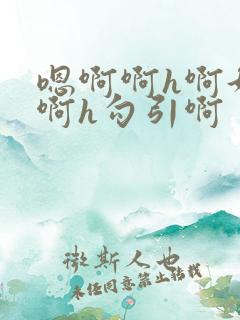 嗯啊啊h啊
啊h勾引啊
微斯人也
未经同意禁止转载